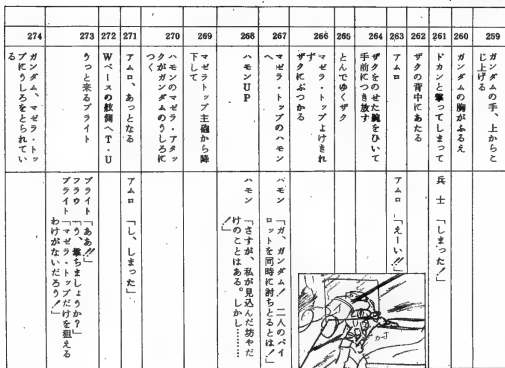 259
ガンダムの手、上からこ
じ上げる
260
ガンダムの胸がふるえ
261
ドカンと撃ってしまって
兵士「しまった!」
262
ザクの背中にあたる
263
アムロ
アムロ「えーい!!」
264
ザクをのせた腕をひいて
手前につき放す
265
とんでゆくザク
266
マゼラ・トップよけきれ
ず
ザクにぶつかる
267
マゼラ・トップのハモン
へ
ハモン「ガ、ガンダム!二人のパイ
ロットを同時に討ちとるとは!」
268
ハモンUP
ハモン「さすが、私が見込んだ坊やだ
けのことはある。しかし………
!」
269
マゼラトップ主砲から降
下して
270
ハモンのマゼラ・アタッ
クがガンダムのうしろに
つく
271
アムロ、あっとなる
アムロ「し、しまった」
272
Wベースの舷側へT・U
273
うっと来るブライト
ブライト「ああ!!」
フラウ「う、撃ちましょうか?」
ブライト「マゼラ・トップだけを狙える
わけがないだろう!」
274
ガンダム、マゼラ・トッ
プにうしろをとられてい
る